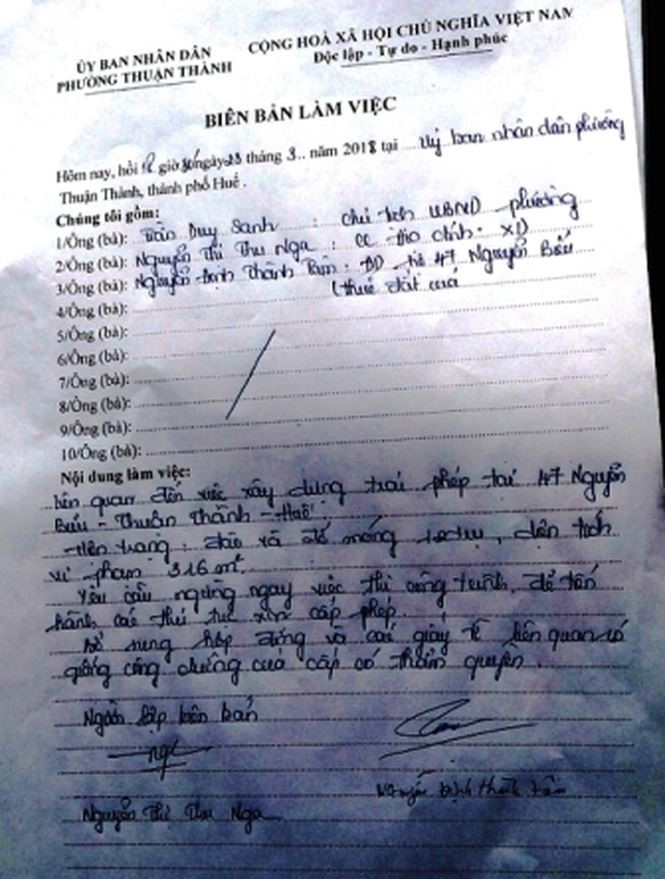 ỦY BAN NHÂN DÂN
PHƯỜNG THUẬN THÀNH
CỘNG HOÀ XÃ HỘI CHỦ NGHĨA VIỆT NAM
Độc lập - Tự do - Hạnh phúc
BIÊN BẢN LÀM VIỆC
Hôm nay, hồi giờ ngày 23 tháng 3.. năm 2018 tại .... Uỷ ban nhân dân phường
Thuận Thành, thành phố Huế .
Chúng tôi gồm:
1/Ông (bà): Trần Duy Sanh : Chủ tịch UBND phường
2/Ông (bà): Nguyễn Thị Thu Nga : CC địa chính - XD
3/Ông (bà): Nguyễn Đình Thành Tâm : 47 Nguyễn Biểu
(thuê đất
4/Ông (bà):
5/Ông (bà):
6/Ông (bà):
7/Ông (bà):
8/Ông (bà):
9/Ông (bà):
10/Ông (bà):
Nội dung làm việc:
Liên quan đến việc xây dựng trái phép tại 47 Nguyễn
Biểu - Thuận Thành - Huế
Hiện trạng : đào và đổ móng , diện tích
vi phạm 316 m².
Yêu cầu ngừng ngay việc thi công trình, để tiến
hành các thủ tục xin cấp phép.
Bổ sung hợp đồng và các giấy tờ liên quan có
công chứng của cấp có thẩm quyền .
Người lập biên bản
Nguyễn Thị Thu Nga
Nguyễn Đình Thành Tâm